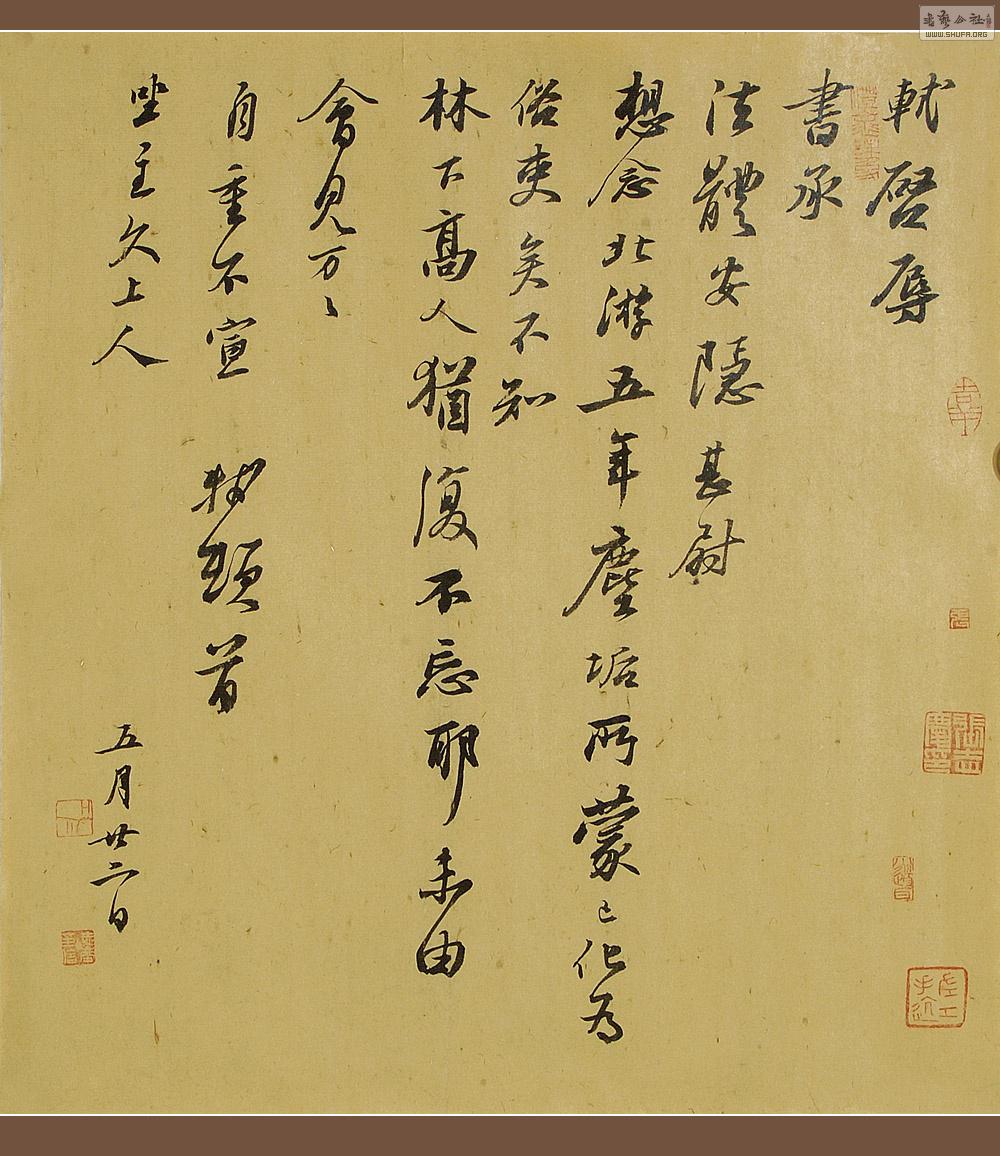 軾啓辱
書承
法體安隱甚尉
想念北游五年塵垢所蒙已化為
俗吏矣不知
林下高人猶復不忘耶未由
會見万〻
自重不宣 軾頓首
坐主久上人
五月廿二日
書藝公社
WWW.SHUFA.ORG